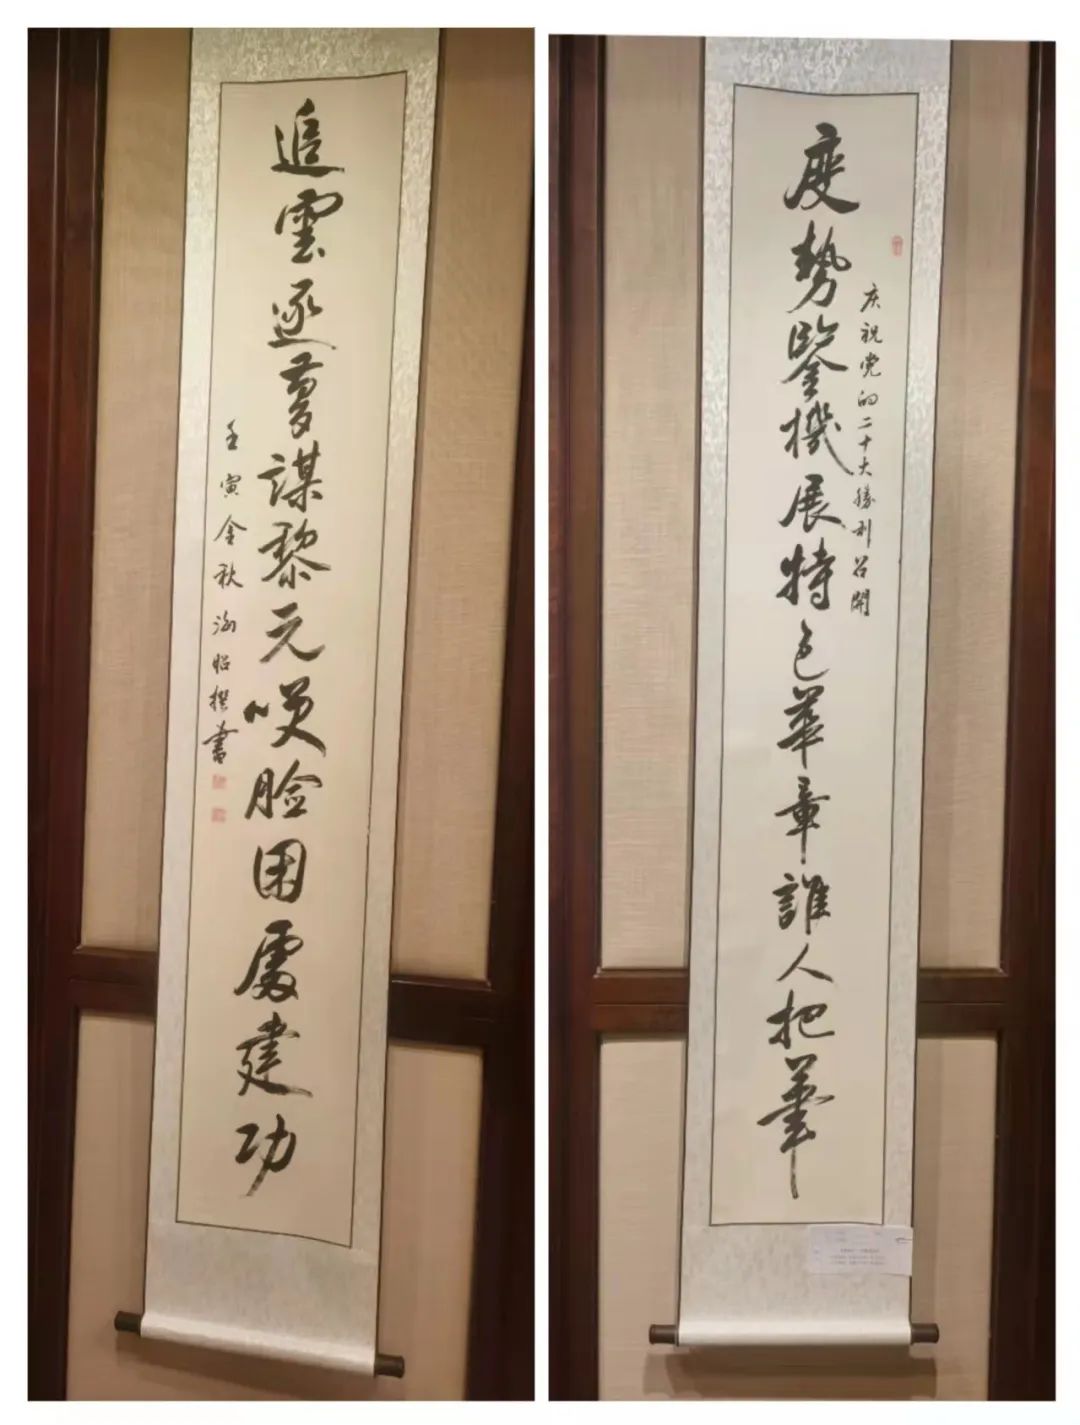 度勢鑒機展特色華章誰人把筆
庆祝党的二十大勝利召開
追雲逐夢謀黎元咲脸困處建功
壬寅金秋撰書